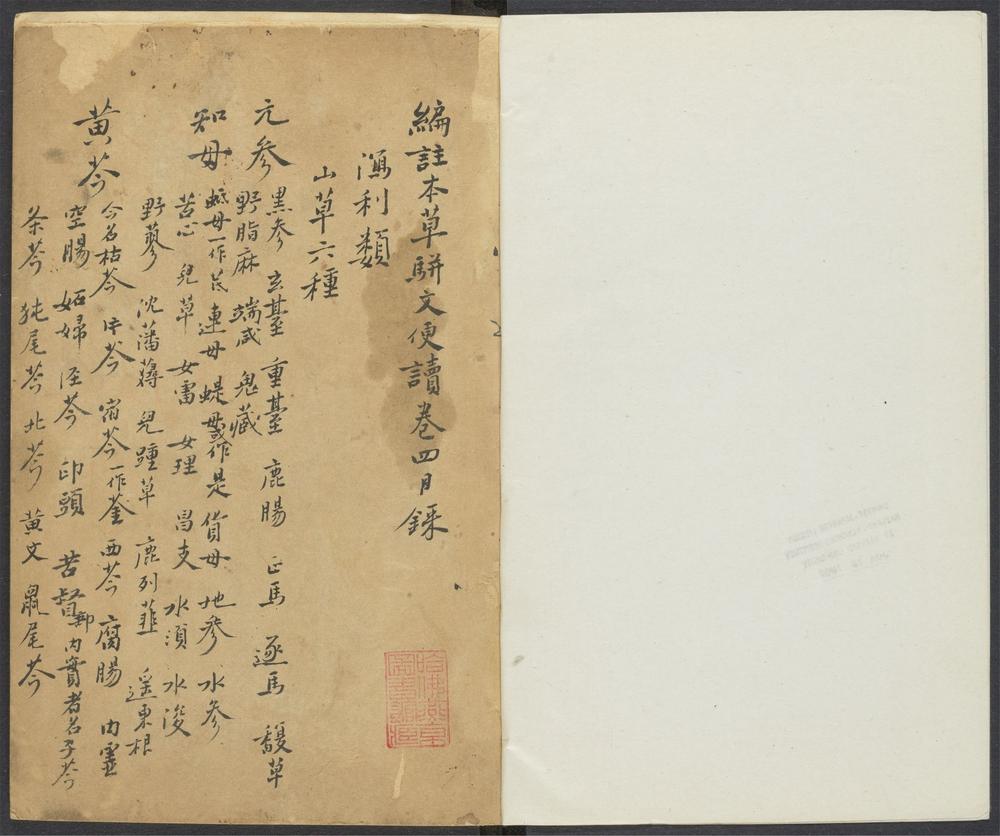 編註本草駢文便讀卷四目錄
瀉利類
山草六種
元參
黑參 玄䑓 重䑓 鹿腸 正馬 逐馬 馥草
野脂麻 端咸 鬼藏
知母
蚳母一作茋 連母 蝭母或作是 貨母 地參 水參
苦心 兒草 女雷 女理 昌支 水須 水浚
野蓼 沈藩䕭 兒踵草 鹿列 韮逢 東根
黃芩
今名枯芩 片芩 宿芩一作菳 西芩 腐腸 內虛
空腸 妬婦 涇芩 印頭 苦督郵 內實者名子芩
条芩 㹠尾芩 北芩 黃文 鼠尾芩
哈佛燕京圖書館